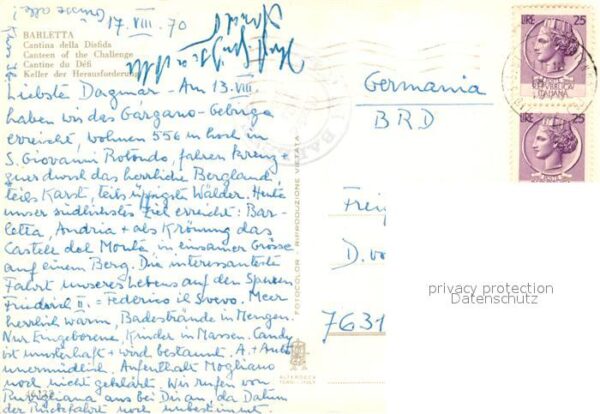 17. VIII. 70
BARLETTA
Cantina della Disfida
Canteen of the Challenge
Cantine du Défi
Keller der Herausforderung
Liebste Dagmar - Am 13. VIII.
haben wir das Gárgano-Gebirge
erreicht, wohnen 556 m hoch in
S. Giovanni Rotondo, fahren kreuz +
quer durch das herrliche Bergland,
teils Karst, teils üppigste Wälder. Heute
unser südlichstes Ziel erreicht: Bar-
letta, Andria + als Krönung das
Castel del Monte in einsamer Grösse
auf einem Berg. Die interessanteste
Fahrt unseres Lebens auf den Spuren
Friedrich II. = Federico il Svevo. Meer
herrlich warm, Badestrände in Mengen.
Nur Eingeborene, Kinder in Massen. Candy
ist musterhaft + wird bestaunt. A. + Auto
unermüdlich. Aufenthalt Mogliano
noch nicht geklärt. Wir rufen von
aus bei Dir an, da Datum
der Rückfahrt noch unbestimmt.
FOTOCOLOR - RIPRODUZIONE VIETATA
ALTEROCCA
TERNI - ITALY
LIRE 25
REPUBBLICA
ITALIANA
LIRE 25
Germania
BRD
D. vo
7631
privacy protection
Datenschutz